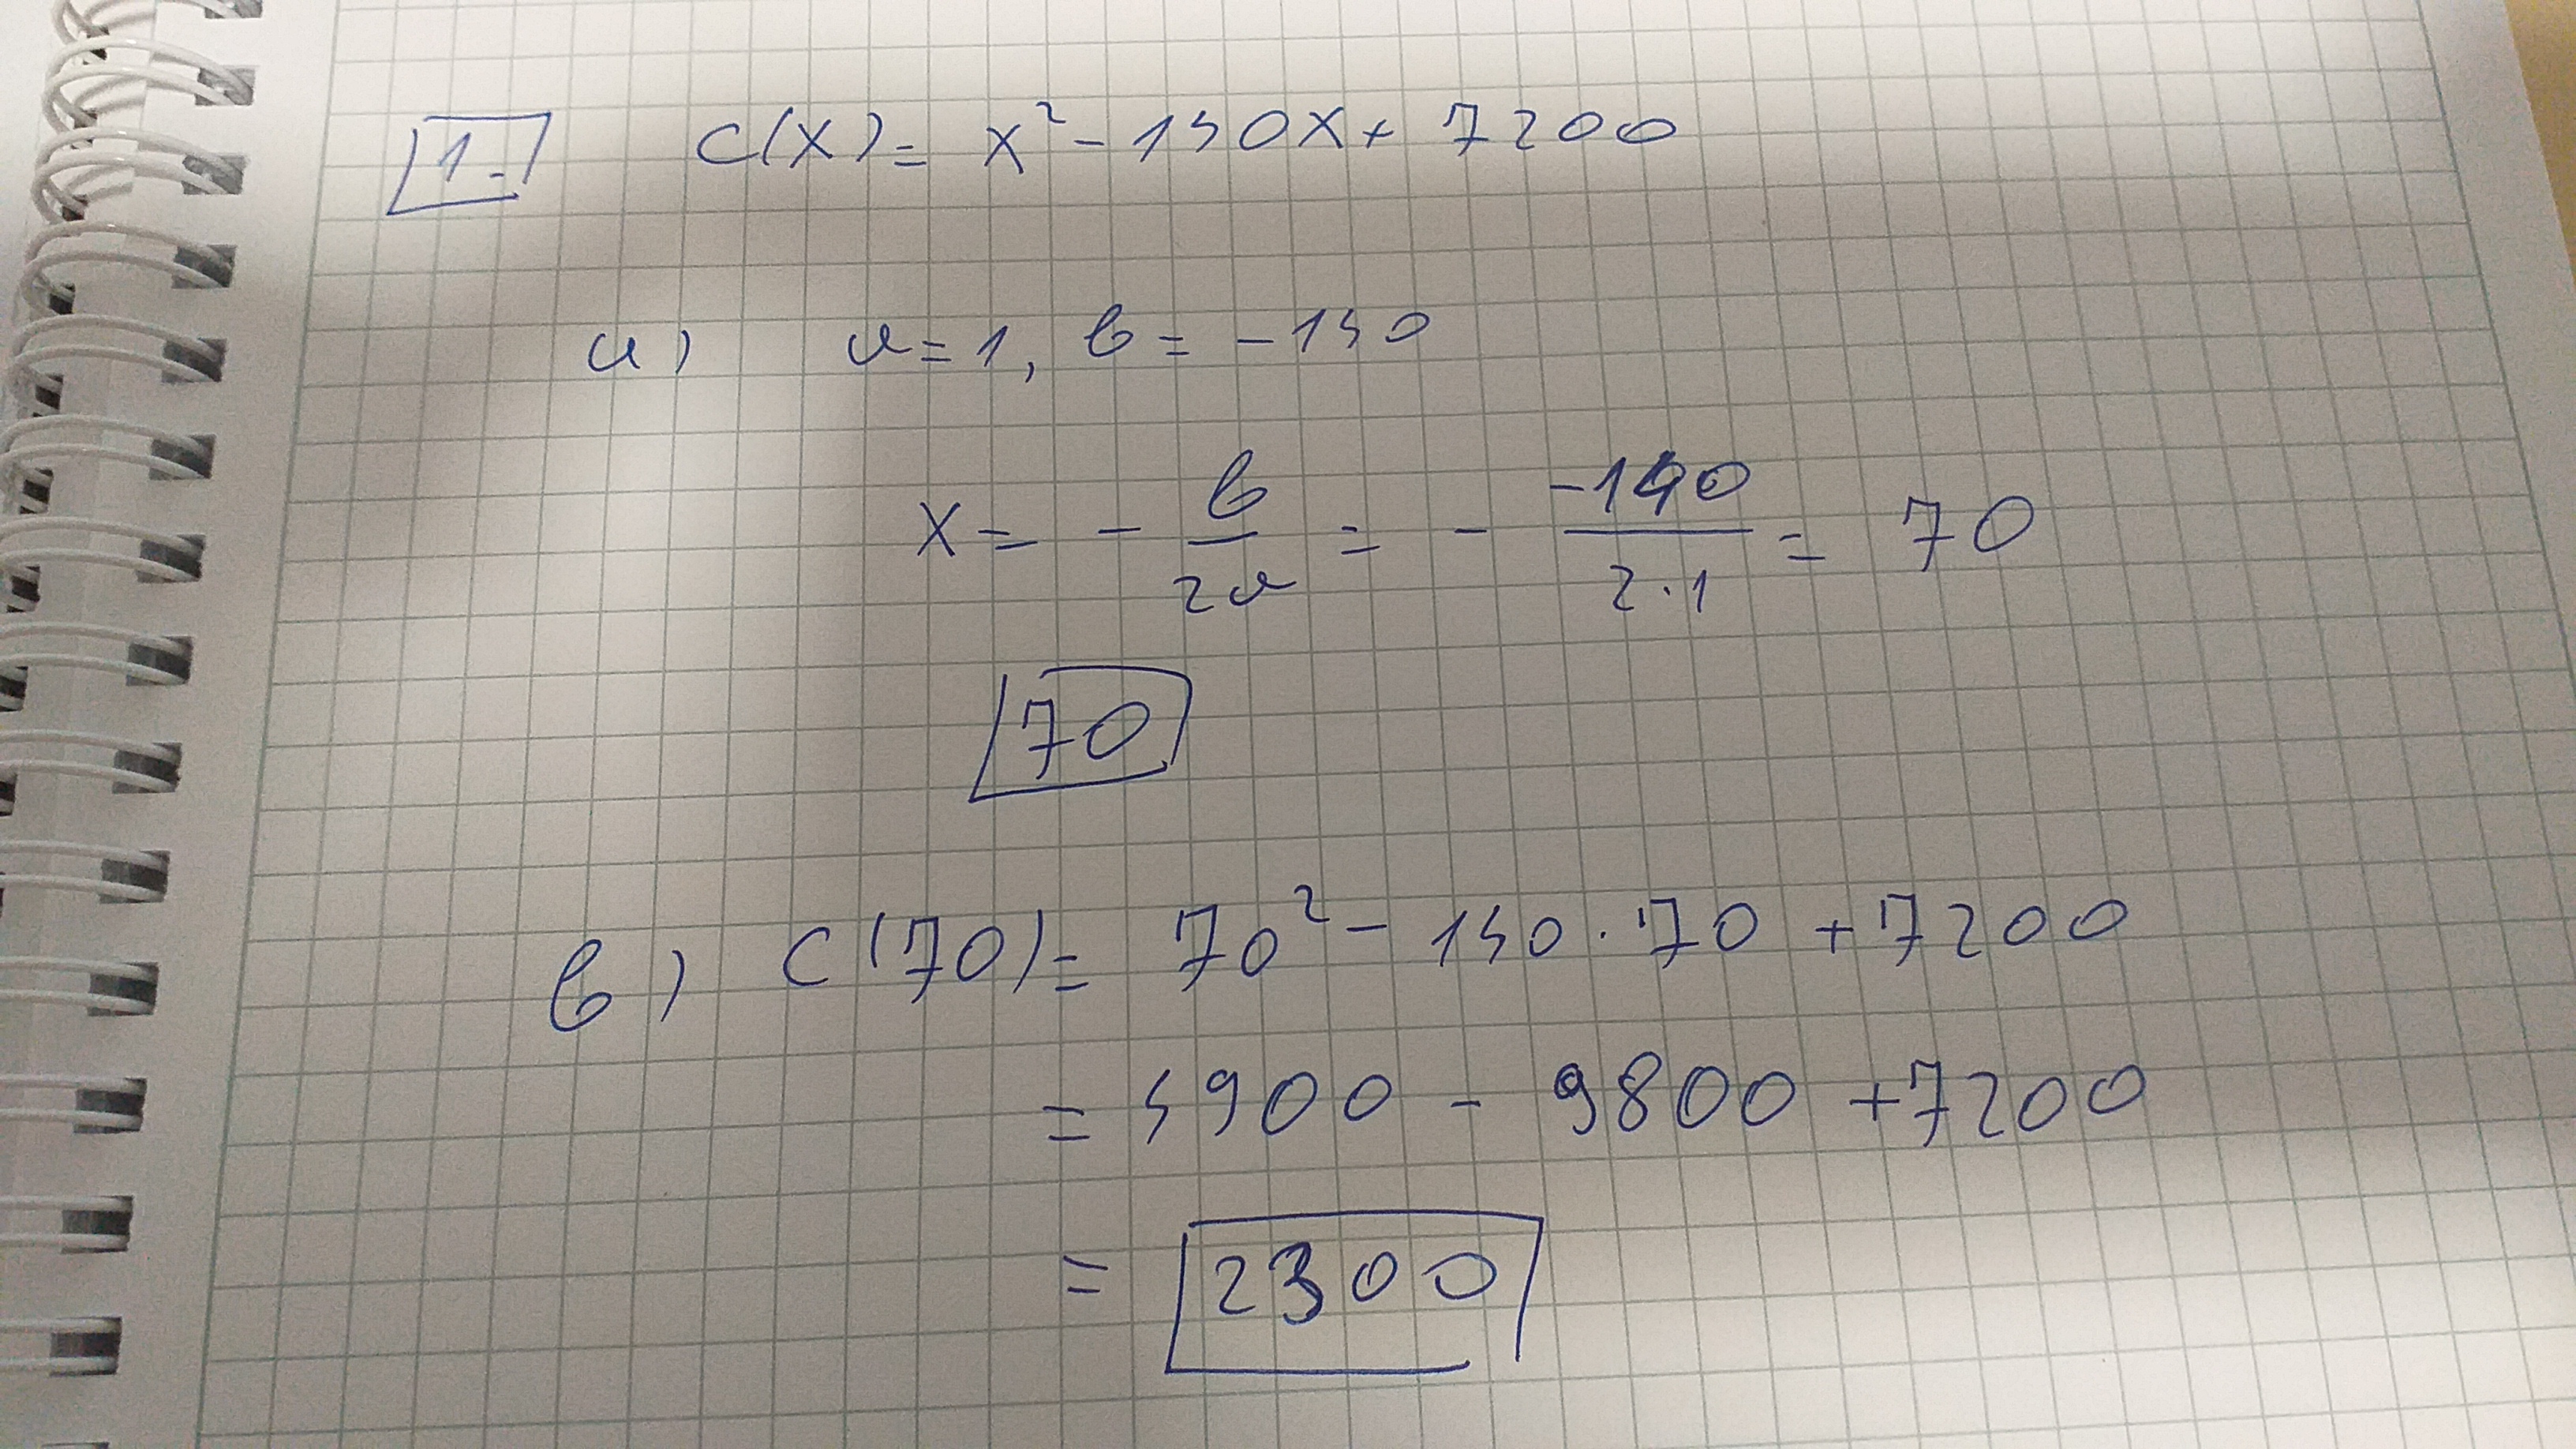 1. C(x) = x² - 140x + 7200
a) a = 1, b = -140
x = - b/2a = - -140/2·1 = 70
70
b) C(70) = 70² - 140·70 + 7200
= 4900 - 9800 + 7200
= 2300